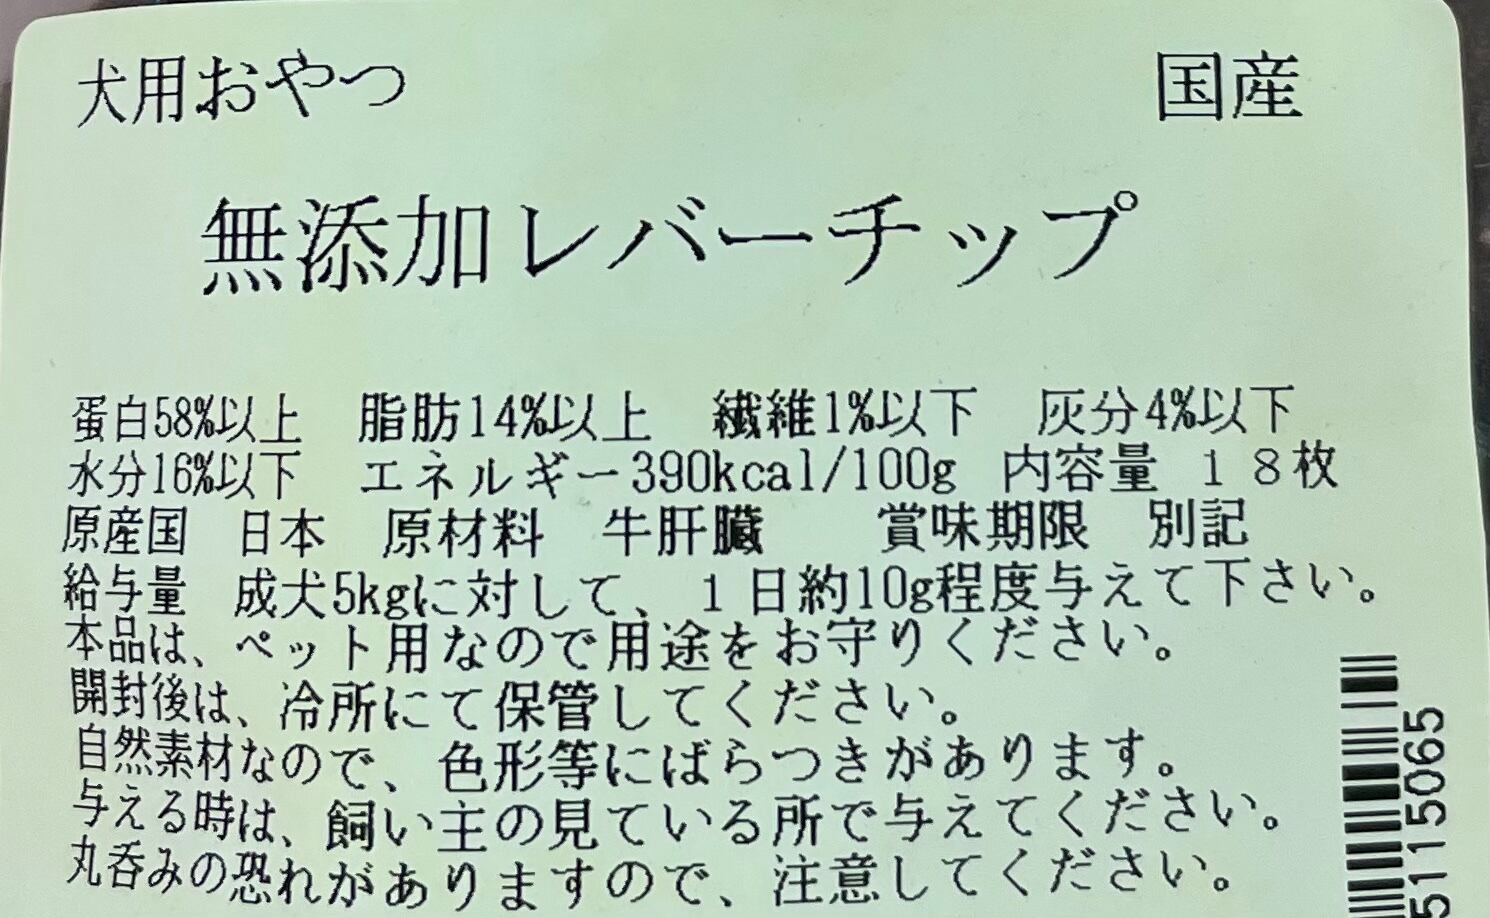 犬用おやつ 国産
無添加レバーチップ
蛋白58%以上 脂肪14%以上 繊維1%以下 灰分4%以下
水分16%以下 エネルギー390kcal/100g 内容量 18枚
原産国 日本 原材料 牛肝臓 賞味期限 別記
給与量 成犬5kgに対して、1日約10g程度与えて下さい。
本品は、ペット用なので用途をお守りください。
開封後は、冷所にて保管してください。
自然素材なので、色形等にばらつきがあります。
与える時は、飼い主の見ている所で与えてください。
丸呑みの恐れがありますので、注意してください。
5115065